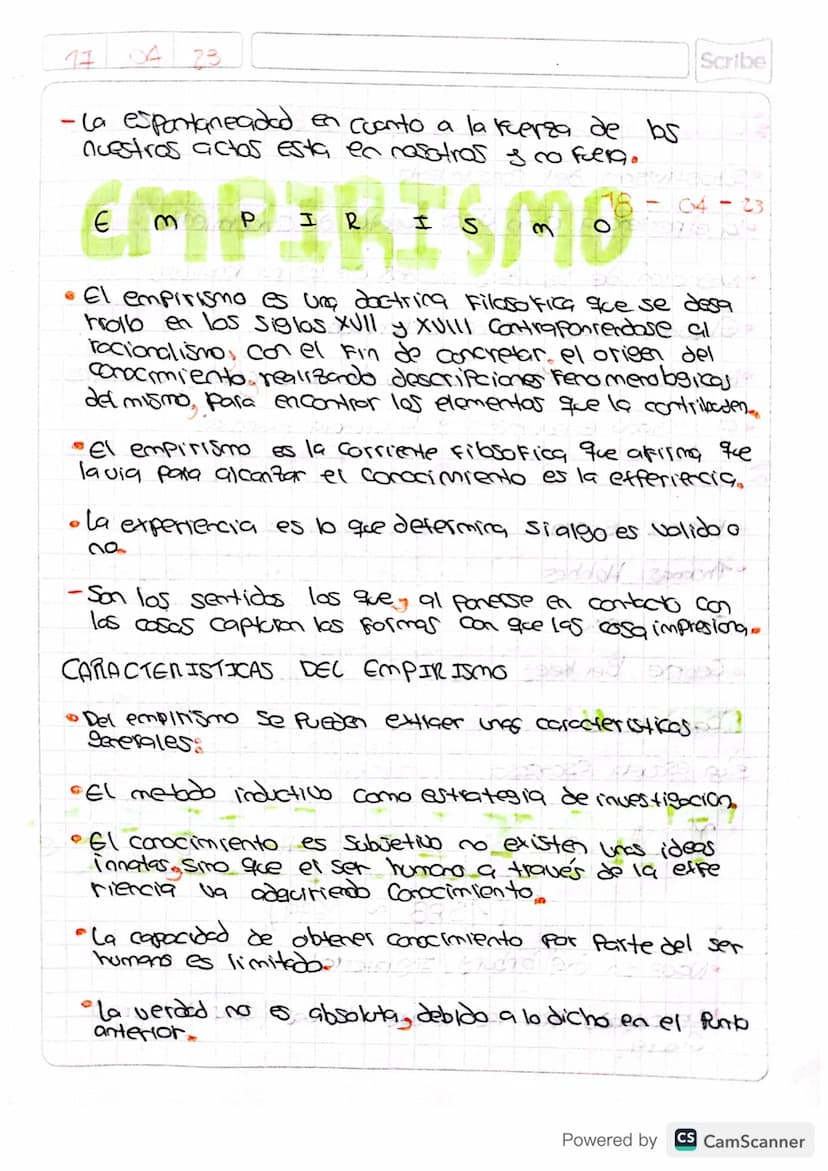 17 04 23
Scribe
- La espontaneidad en cuanto a la fuerza de los
nuestros actos esta en nosotros y no fuera.
EMPIRISMO
E M P I R I S M O
18 - 04 - 23
• El empirismo es una doctrina filosofica que se desa
rrollo en los siglos XVII y XVIII contraponiendose al
racionalismo, con el fin de concretar el origen del
conocimiento, realizando descripciones fenomenologicas
del mismo, para encontrar los elementos que la contribuden.
• El empirismo es la corriente filosofica que afirma que
la via para alcanzar el conocimiento es la experiencia.
• La experiencia es lo que determina si algo es valido o
no.
- Son los sentidos los que, al ponerse en contacto con
las cosas captan las formas con que las cosa impresiona.
CARACTERISTICAS DEL EMPIRISMO
• Del empirismo se pueden extraer unas caracteristicas
generales:
• El metodo inductivo como estrategia de investigacion.
• El conocimiento es subjetivo no existen unas ideas
innatas, sino que el ser humano a través de la expe
riencia va adquiriendo conocimiento.
• La capacidad de obtener conocimiento por parte del ser
humano es limitado.
• La verdad no es absoluta, debido a lo dicho en el punto
anterior.
Powered by CS CamScanner